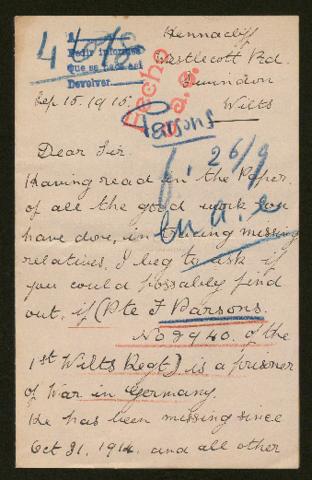 Kennacliff
Westlecott Rd.
Swindon
Wilts
A
Pedir informes
Que se hace así
Devolver
Sep 15. 1915.
Hecho
Parsons
26/9
Dear Sir
Having read in the Paper
of all the good work you
have done, in tracing missing
relatives, I beg to ask if
you could possably find
out, if (Pte F Parsons.
of the
1st Wilts Regt) is a prisoner
of War in Germany.
He has been missing since
Oct 31. 1914. and all other